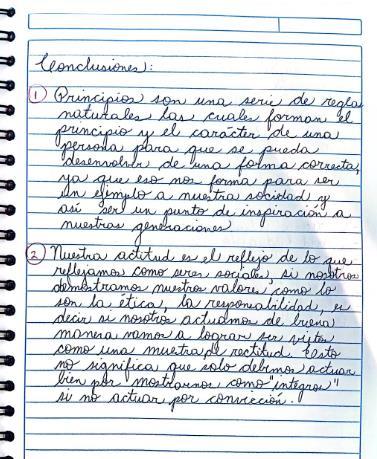 Conclusiones:
1 Principios son una serie de regla
naturales las cuales forman el
principio y el carácter de una
persona para que se pueda
desenvolver de una forma correcta,
ya que eso nos forma para ser
un ejemplo a nuestra sociedad y
así ser un punto de inspiración a
nuestras generaciones
2 Nuestra actitud es el reflejo de lo que
reflejamos como seres sociales, si nosotros
demostramos nuestros valores como lo
son la ética, la responsabilidad, es
decir si nosotros actuamos de buena
manera vamos a lograr ser vistos
como una muestra de rectitud. Esto
no significa que solo debemos actuar
bien por mostrarnos como "íntegros"
si no actuar por convicción.